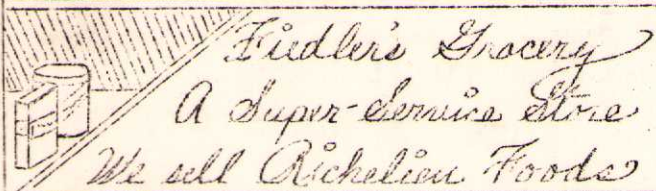 Fiedler's Grocery
A Super-Service Store
We sell Richelieu Foods